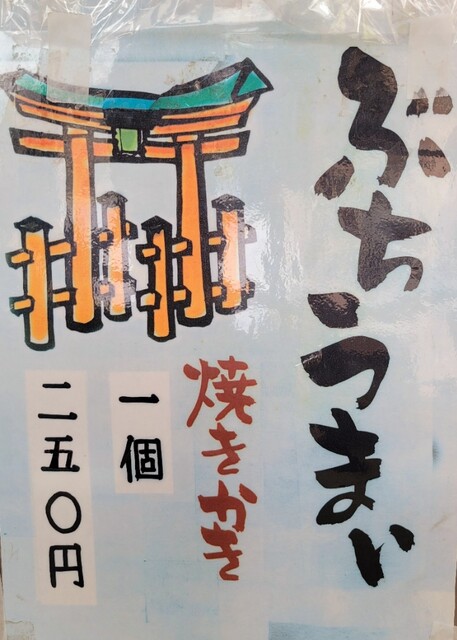 ぶちうまい
焼きかき
一個
二五〇円